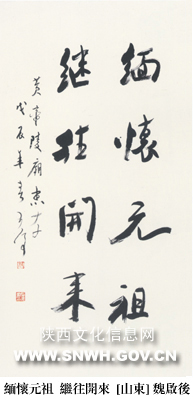 緬懷元祖
继往開来
黄帝陵廟
戊辰
陕西文化信息网
WWW.SNWH.GOV.CN
緬懷元祖 繼往開來 [山東] 魏啟後